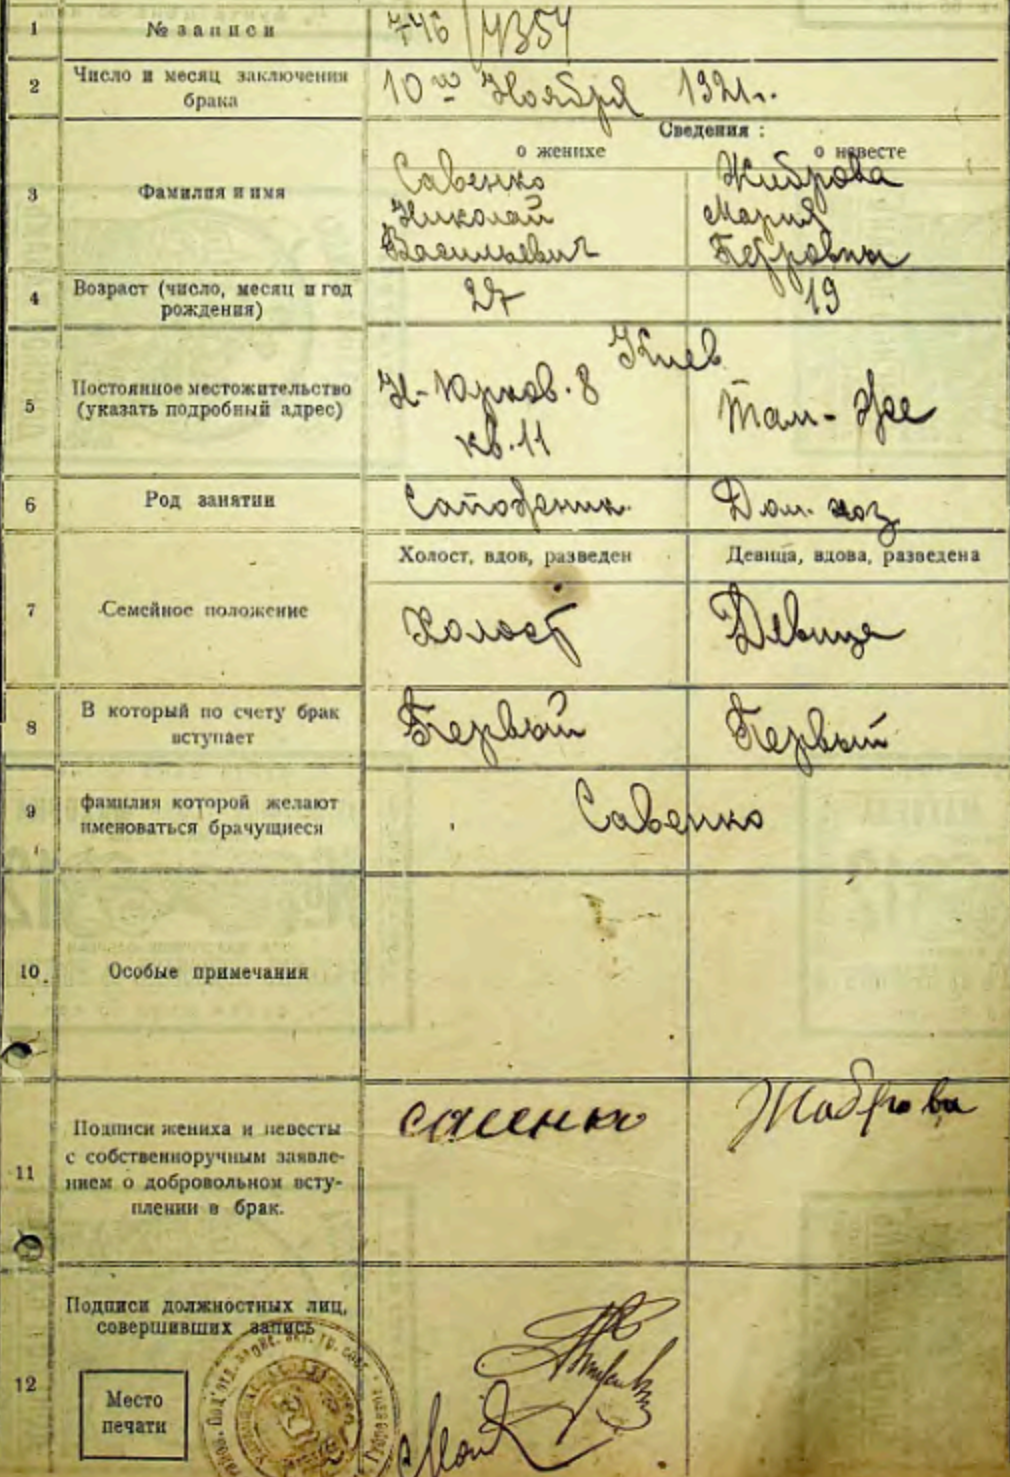 1 № записи 746/4354
2 Число и месяц заключения
брака
10го Ноября 1921г.
Сведения:
о женихе о невесте
3 Фамилия и имя
Савенко
Николай
Васильевич
Жаброва
Мария
Петровны
4 Возраст (число, месяц и год
рождения)
27 19
5 Постоянное местожительство
(указать подробный адрес)
Киев
Н-Юрков. 8
кв. 11
там-же
6 Род занятии Сапожник Дом. хоз
Холост, вдов, разведен Девица, вдова, разведена
7 Семейное положение Холост Девица
8 В который по счету брак
вступает
Первый Первый
9 фамилия которой желают
именоваться брачущиеся
Савенко
10. Особые примечания
11 Подписи жениха и невесты
с собственноручным заявле-
нием о добровольном всту-
плении в брак.
Жаброва
12 Подписи должностных лиц,
совершивших запись
Место
печати